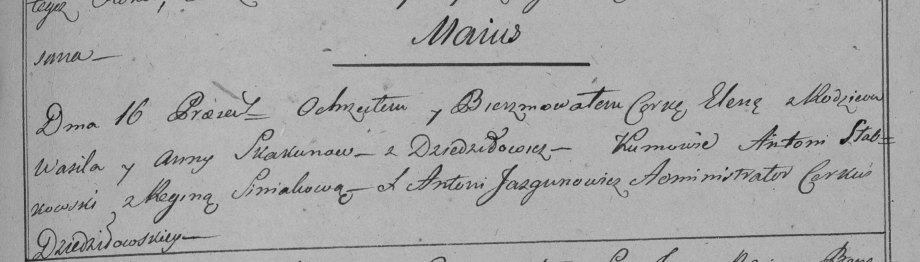 Maius
sana —
Dma 16 Præsen= Ochrzciłem y Bierzmowałem Corkę Elenę z Rodzicow
Wasila y Anny Skakunow — z Dziedziłowicz — Kumowie Antoni Słab=
kowski z Reginą Siniakową — X Antoni Jazgunowicz Administrator Cerkwi
Dziedziłowskiey —